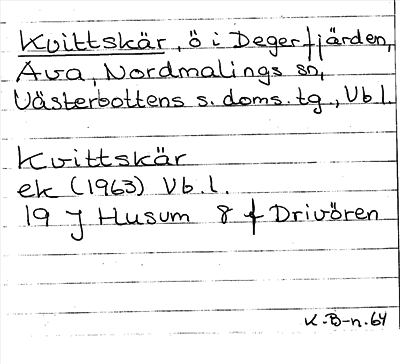 Kvittskär, ö i Degerfjärden,
Ava, Nordmalings sn,
Västerbottens s. doms. tg., Vb l.
Kvittskär
ek (1963) Vb. l.
19 J Husum 8 f Drivören
K. B-n. 64